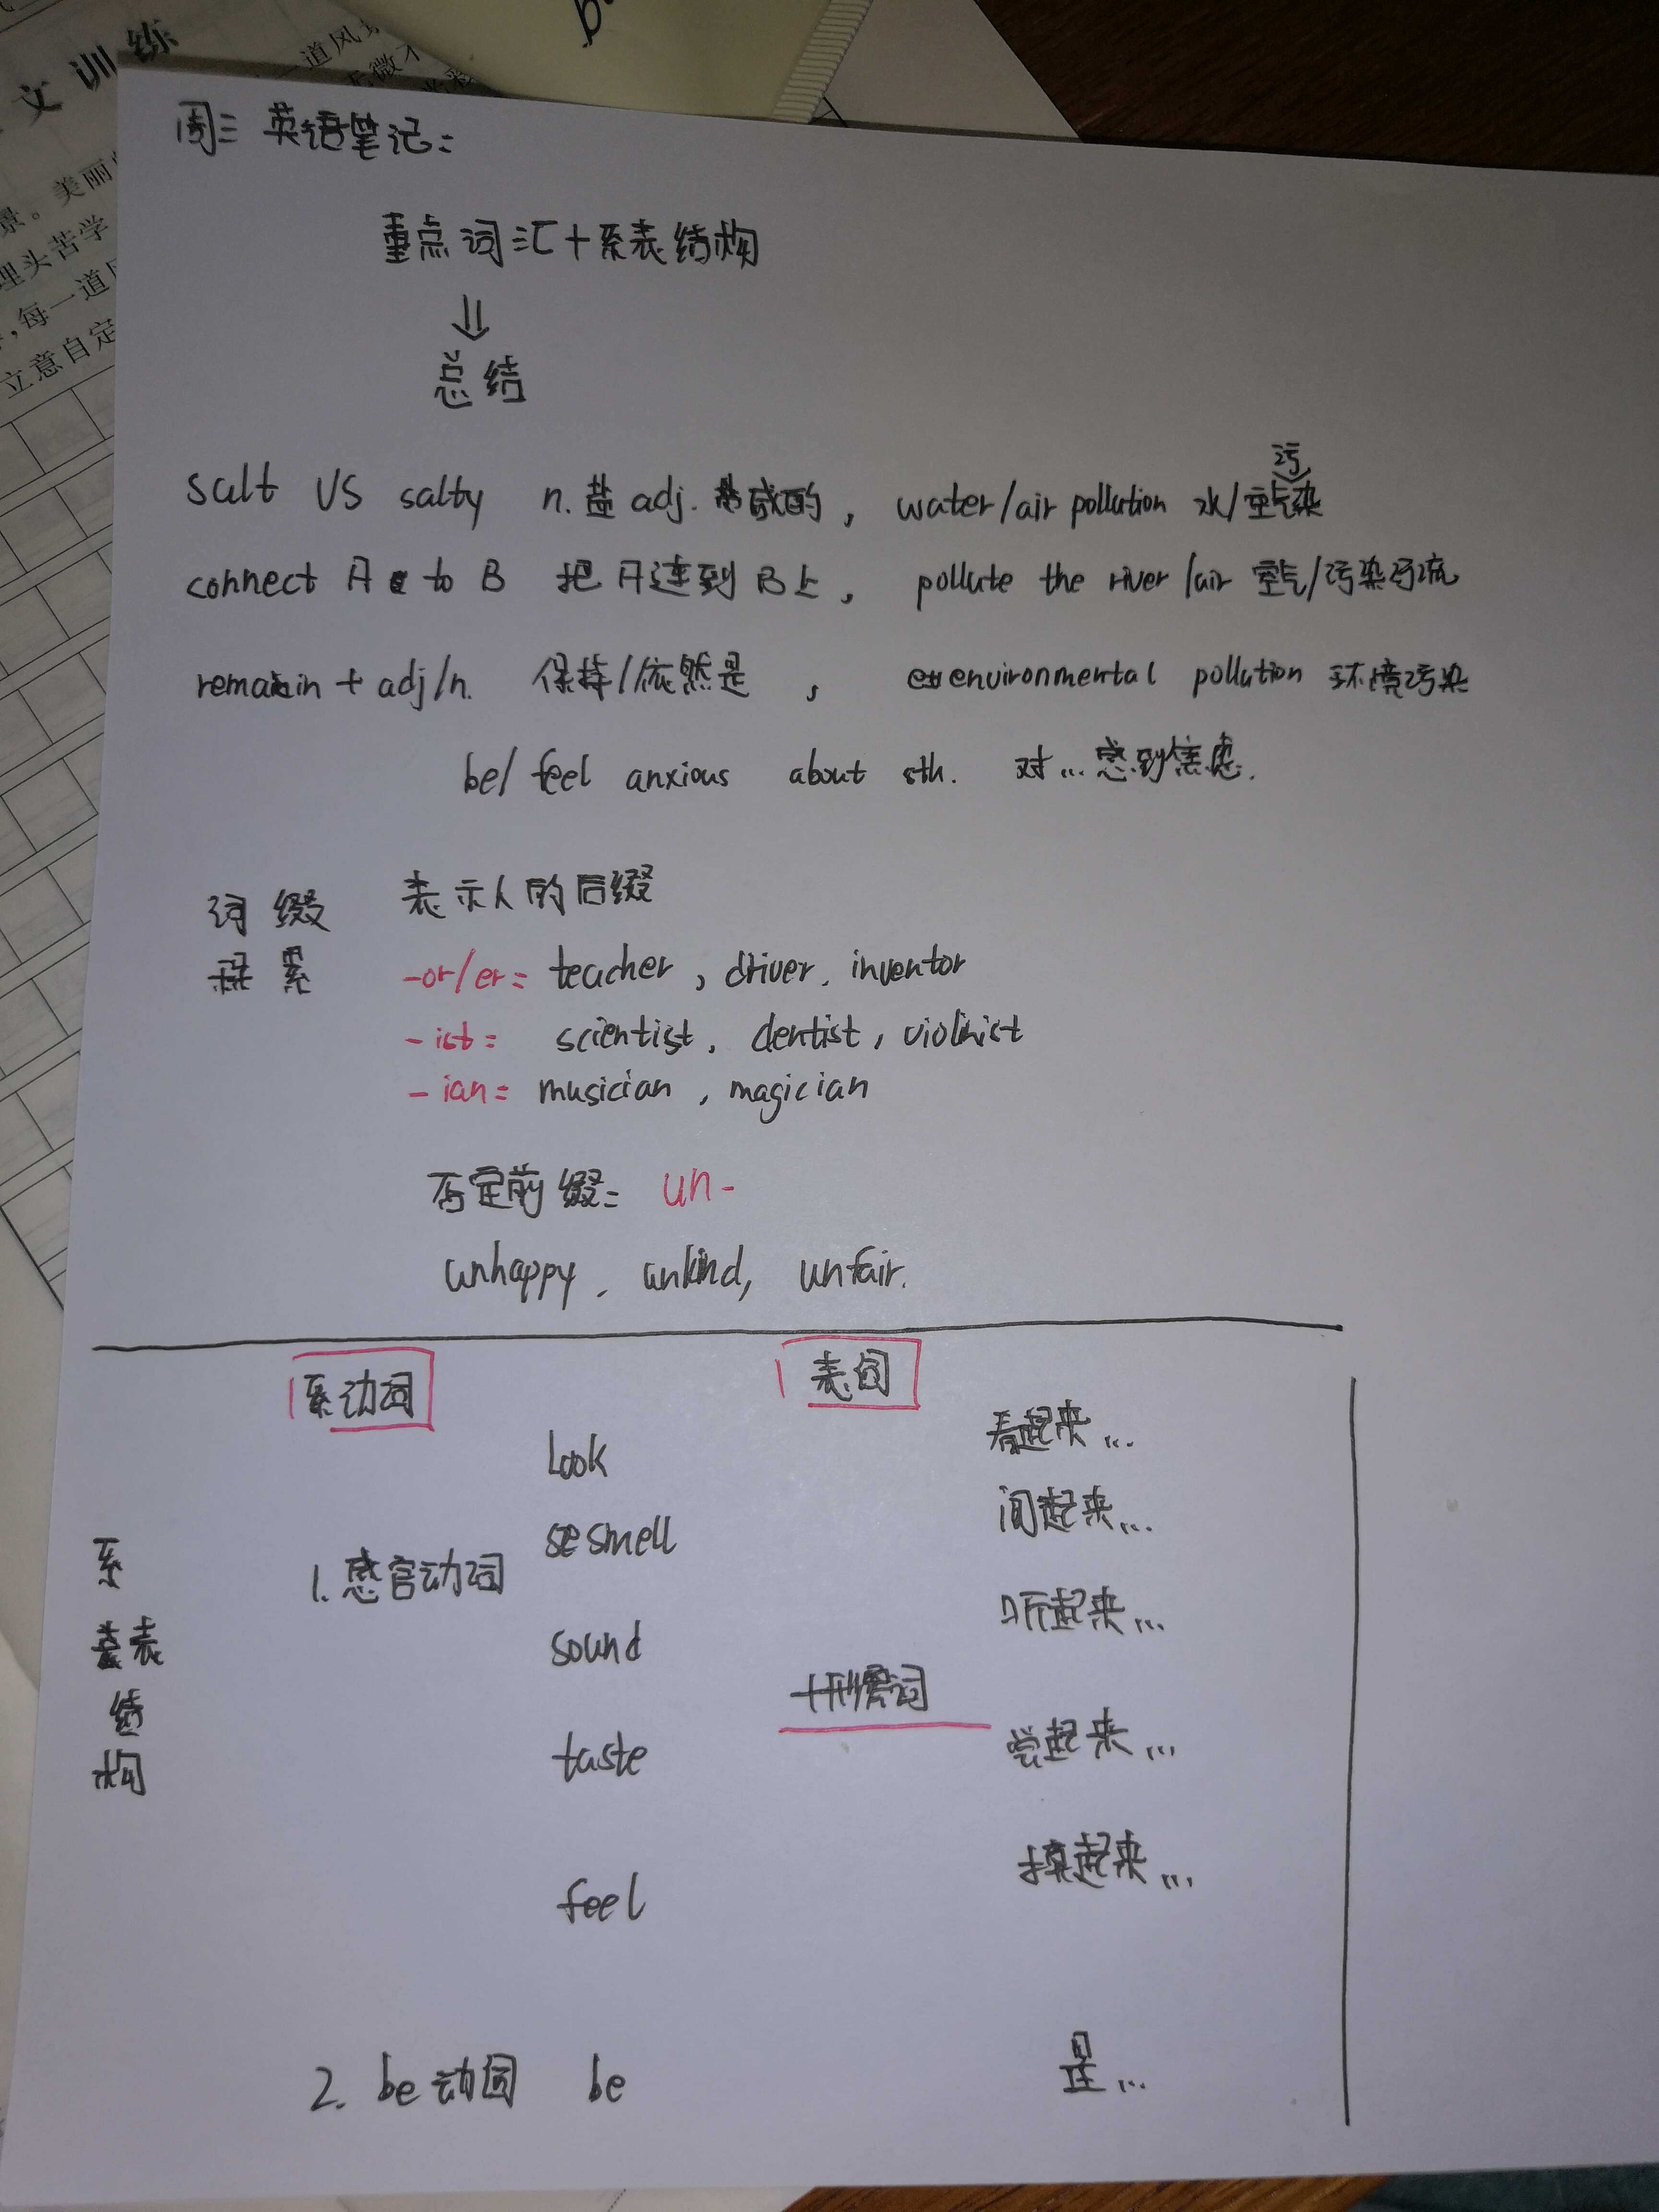 文训练
一道风景
美丽
景。
理头苦学
,每一道风
立意自定
周三英语笔记:
重点词汇+系表结构
⇓
总结
salt VS salty n.盐 adj.咸的, water/air pollution 水/空气污染
connect A to B 把A连到B上, pollute the river/air 空气/污染河流
remain + adj/n. 保持/依然是, environmental pollution 环境污染
be/feel anxious about sth. 对...感到焦虑.
词缀 表示人的后缀
探索 -or/er: teacher, driver, inventor
-ist: scientist, dentist, violinist
-ian: musician, magician
否定前缀: un-
unhappy, unkind, unfair.
系动词 表词
look 看起来...
smell 闻起来...
系表结构 1.感官动词
sound 听起来...
+形容词
taste 尝起来...
feel 摸起来...
2. be动词 be 是...